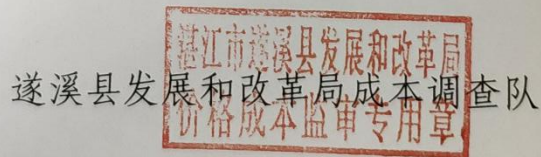 湛江市遂溪县发展和改革局
遂溪县发展和改革局成本调查队
价格成本监审专用章